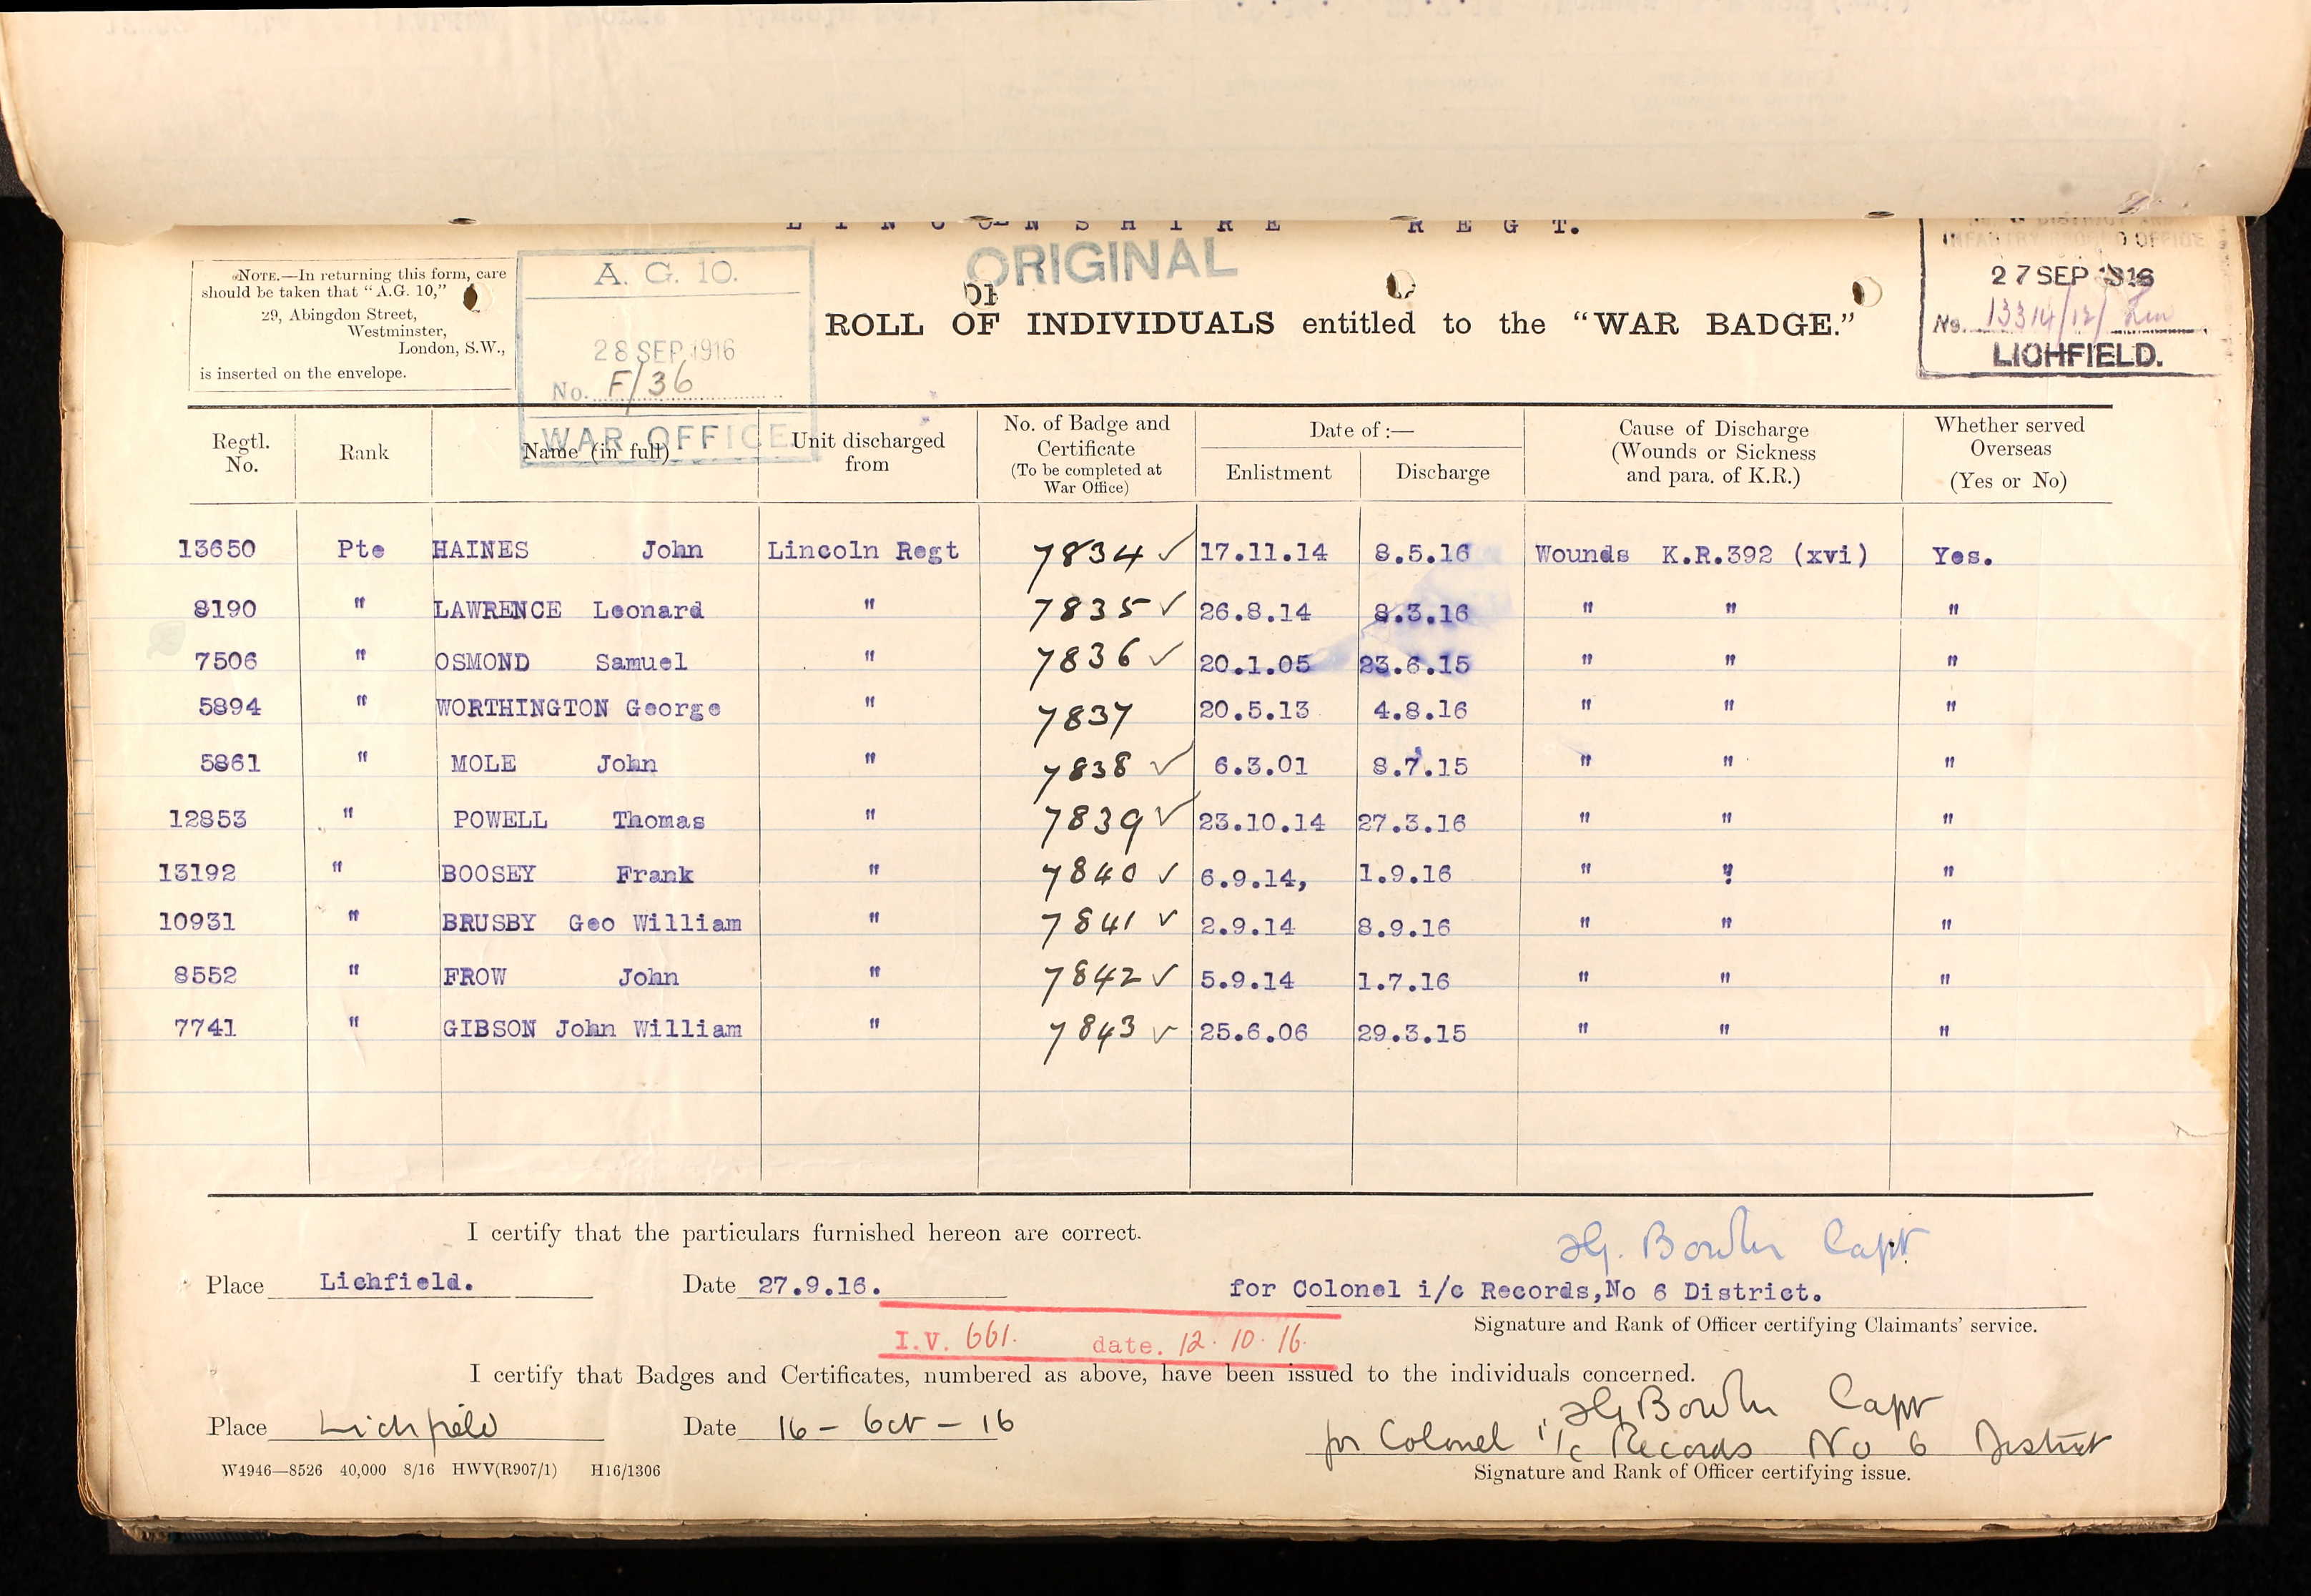 LINCOLNSHIRE REGT.
ORIGINAL
NOTE.—In returning this form, care
should be taken that "A.G. 10,"
29, Abingdon Street,
Westminster,
London, S.W.,
is inserted on the envelope.
A. G. 10.
28 SEP 1916
No. F/36
WAR OFFICE
ROLL OF INDIVIDUALS entitled to the "WAR BADGE."
INFANTRY RECORD OFFICE
27 SEP 1916
No. 13314/12/
LICHFIELD.
Regtl. No. Rank Name (in full) Unit discharged from No. of Badge and Certificate (To be completed at War Office) Date of :— Enlistment Discharge Cause of Discharge (Wounds or Sickness and para. of K.R.) Whether served Overseas (Yes or No)
13650 Pte HAINES John Lincoln Regt 7834 ✓ 17.11.14 8.5.16 Wounds K.R.392 (xvi) Yes.
8190 " LAWRENCE Leonard " 7835 ✓ 26.8.14 8.3.16 " " "
7506 " OSMOND Samuel " 7836 ✓ 20.1.05 23.6.15 " " "
5894 " WORTHINGTON George " 7837 20.5.13 4.8.16 " " "
5861 " MOLE John " 7838 ✓ 6.3.01 8.7.15 " " "
12853 " POWELL Thomas " 7839 ✓ 23.10.14 27.3.16 " " "
13192 " BOOSEY Frank " 7840 ✓ 6.9.14, 1.9.16 " " "
10931 " BRUSBY Geo William " 7841 ✓ 2.9.14 8.9.16 " " "
8552 " FROW John " 7842 ✓ 5.9.14 1.7.16 " " "
7741 " GIBSON John William " 7843 ✓ 25.6.06 29.3.15 " " "
I certify that the particulars furnished hereon are correct.
Capt
Place Lichfield. Date 27.9.16. for Colonel i/c Records,No 6 District.
Signature and Rank of Officer certifying Claimants' service.
I.V. 661. date. 12.10.16.
I certify that Badges and Certificates, numbered as above, have been issued to the individuals concerned.
Capt
Place Lichfield Date 16 - Oct - 16 for Colonel i/c Records No 6 District
Signature and Rank of Officer certifying issue.
W4946—8526 40,000 8/16 HWV(R907/1) H16/1306